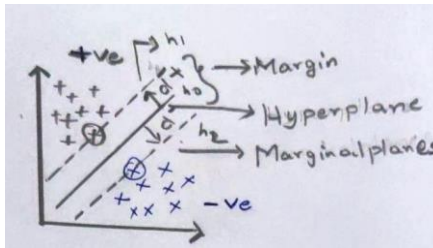 +ve
h1
Margin
d
h0
Hyperplane
d
h2
Marginal planes
-ve